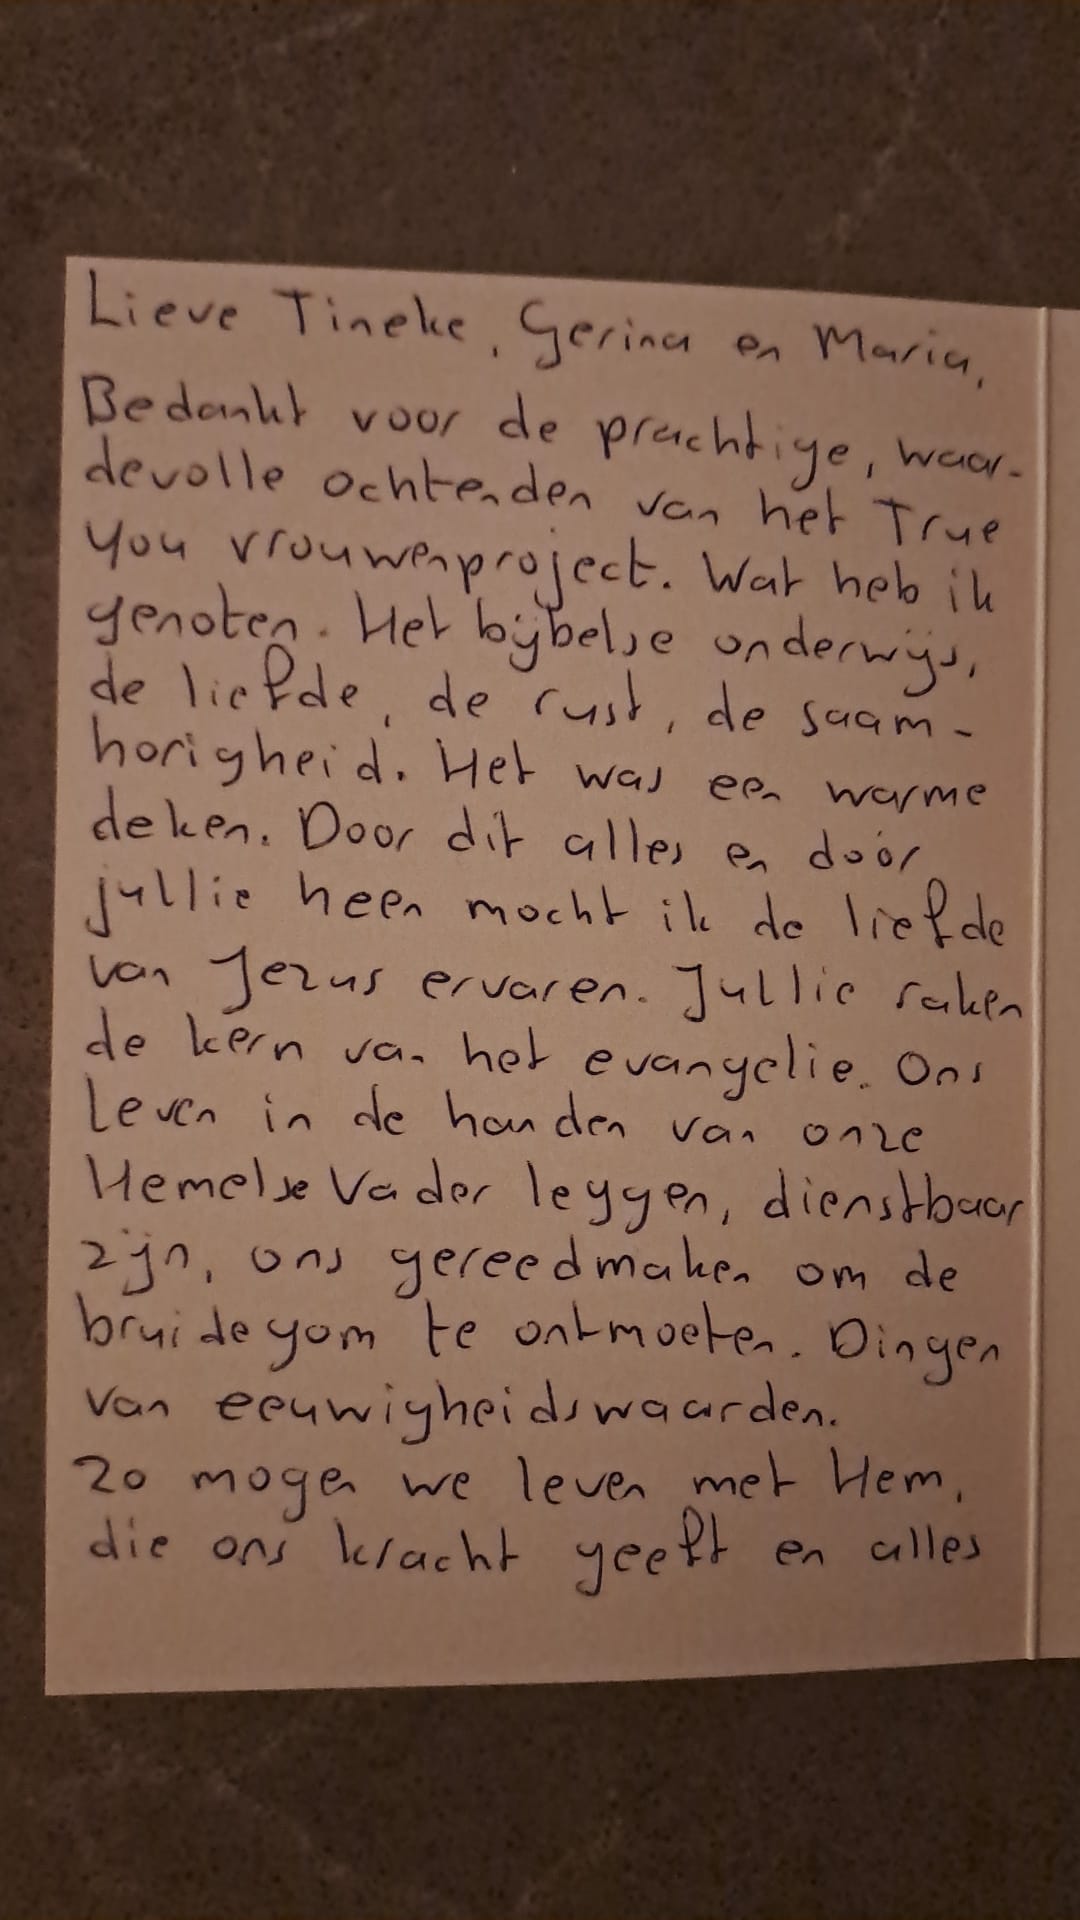 Lieve Tineke, Gerina en Maria,
Bedankt voor de prachtige, waar-
devolle ochtenden van het True
You vrouwenproject. Wat heb ik
genoten. Het bijbelse onderwijs,
de liefde, de rust, de saam-
horigheid. Het was een warme
deken. Door dit alles en dóór
jullie heen mocht ik de liefde
van Jezus ervaren. Jullie raken
de kern van het evangelie. Ons
leven in de handen van onze
Hemelse Vader leggen, dienstbaar
zijn, ons gereedmaken om de
bruidegom te ontmoeten. Dingen
van eeuwigheidswaarden.
Zo mogen we leven met Hem,
die ons kracht geeft en alles